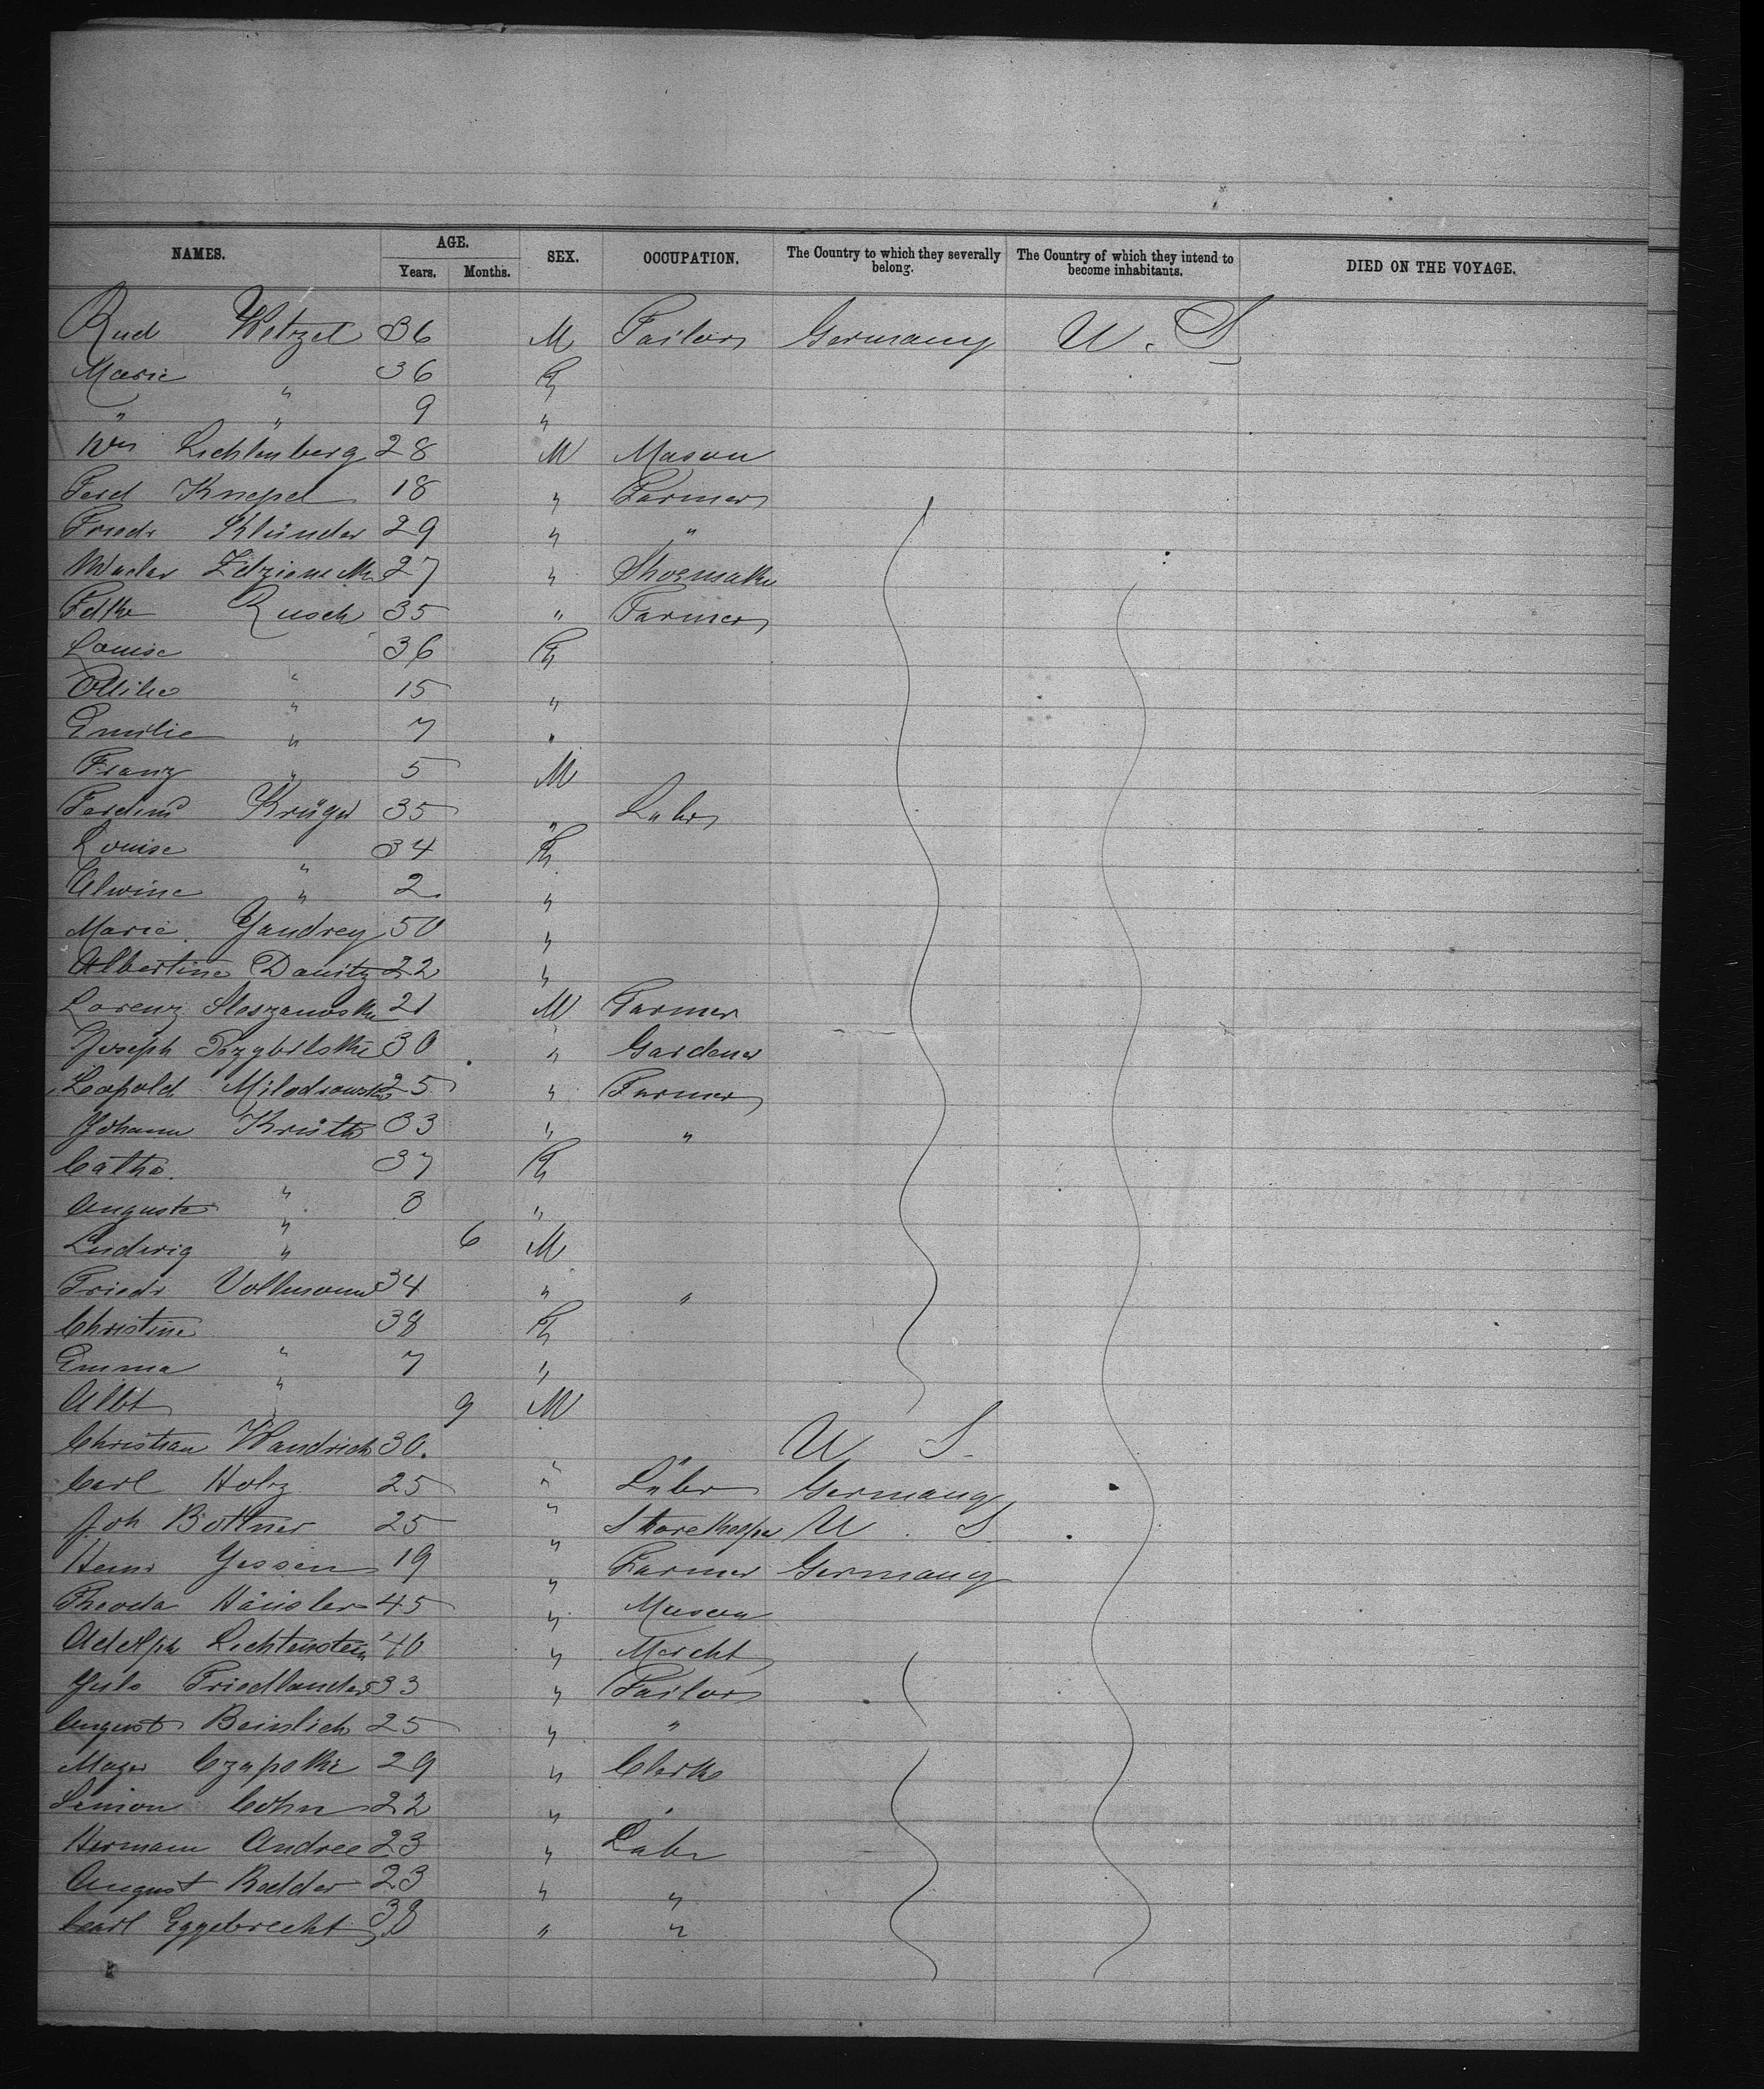 NAMES. AGE. SEX. OCCUPATION. The Country to which they severally belong. The Country of which they intend to become inhabitants. DIED ON THE VOYAGE.
Years. Months.
Rud Wetzel 36 M Tailor Germany U. S.
Marie " 36 F
" " 9 "
Wm Lichtenberg 28 M Mason
Ferd Knepel 18 " Farmer
Friedr Klünder 29 " "
27 " Shoemaker
Rusch 35 " Farmer
Louise " 36 F
15 "
Emilie " 7 "
Franz " 5 M
Ferdind Krüger 35 " Labr
Louise " 34 F
Alwine " 2 "
Marie Gandrey 50 "
Albertine Danitz 22 "
Lorenz 21 M Farmer
Joseph Przybilski 30 " Gardener
Leopold Milodrowski 25 " Farmer
Johann 33 " "
Catha. " 37 F
Auguste " 3 "
Ludwig " 6 M
Friedr Volkmann 34 " "
Christine " 38 F
Emma " 7 "
Albt " 9 M
Christian Wandrich 30 " " U S
Carl Holz 25 " Labr Germany
Joh Bottner 25 " Storekeeper U. S
Henr Jessen 19 " Farmer Germany
Theodr Häusler 45 " Mason
Adolph Lichtenstein 40 " Mercht
Juls Friedlander 33 " Tailor
August Beinlich 25 " "
Mayer Czapski 29 " Clerk
Simon Cohn 22 " "
Hermann Andree 23 " Labr
August Redder 23 " "
Carl Eggebrecht 38 " "